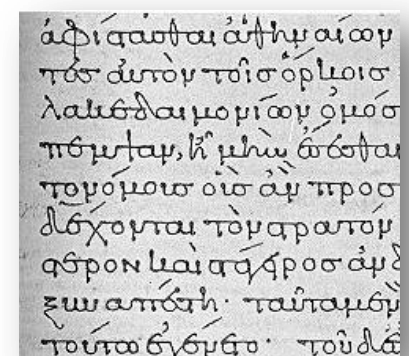 ἀφίστασθαι ἀθηναίων
τὲσ αὐτὸν τοῖσ ὅρκοισ
λακεδαιμονίων ὀμόσ
πεμψαν, ἦ μὴν ἔσεσθαι
τονόμουσ οὓσ ἂν προσ
δέχονται τὸν στρατόν
στερον καὶ στάγιροσ ἀνδ
ξυναπέστη· ταῦτα μὲν
τούτω ἐγένετο· τοῦ δὲ